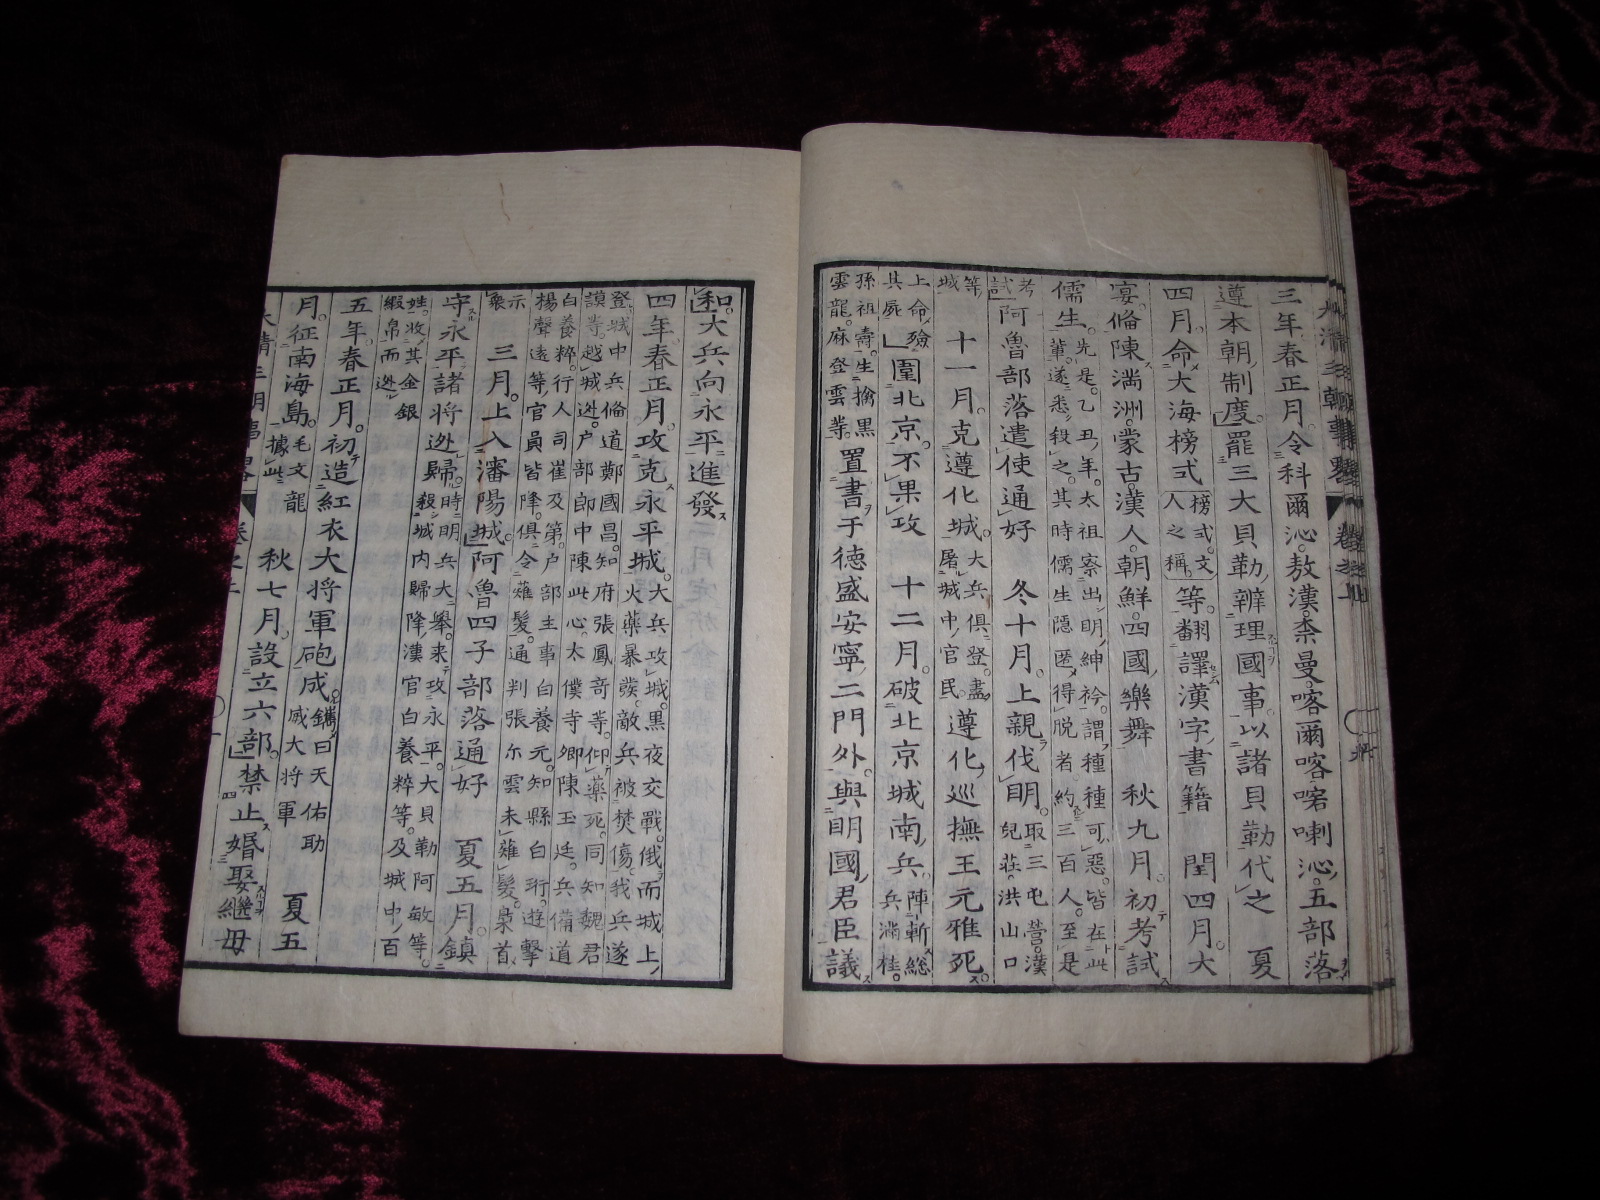 三年春正月令科爾沁敖漢柰曼喀爾喀喀喇沁五部落
遵本朝制度罷三大貝勒辦理國事以諸貝勒代之　夏
四月命大海榜式榜式文人之稱等翻譯漢字書籍　閏四月大
宴俻陳滿洲蒙古漢人朝鮮四國樂舞　秋九月初考試
儒生先是乙丑年太祖察出明紳衿謂種種可惡皆在此
輩遂悉殺之其時儒生隱匿得脱者約三百人至是
考試阿魯部落遣使通好　冬十月上親伐明取三屯營漢兒莊洪山口
等城　十一月克遵化城大兵俱登盡屠城中官民遵化巡撫王元雅死
上命殮其屍圍北京不果攻　十二月破北京城南兵陣斬総兵滿桂
孫祖壽生擒黑雲龍麻登雲等置書于德盛安寧二門外與明國君臣議
和大兵向永平進發
四年春正月攻克永平城大兵攻城黑夜交戰俄而城上
火藥暴發敵兵被焚傷我兵遂
登城中兵俻道鄭國昌知府張鳳竒等仰藥死同知魏君
謨等越城迯户部郎中陳此心太僕寺卿陳王廷兵備道
白養粹行人司崔及第户部主事白養元知縣白珩遊擊
楊聲遠等官員皆降俱令薙髮通判張尔雲未薙髮梟首
示衆　三月上入瀋陽城阿魯四子部落通好　夏五月鎮
守永平諸将迯歸時明兵大舉来攻永平大貝勒阿敏等
殺城内歸降漢官白養粹等及城中百
姓收其金銀緞帛而迯
五年春正月初造紅衣大将軍砲成鐫曰天佑助威大将軍　夏五
月征南海島毛文龍據此　秋七月設立六部禁止婚娶繼母
大清三朝事畧　卷之上